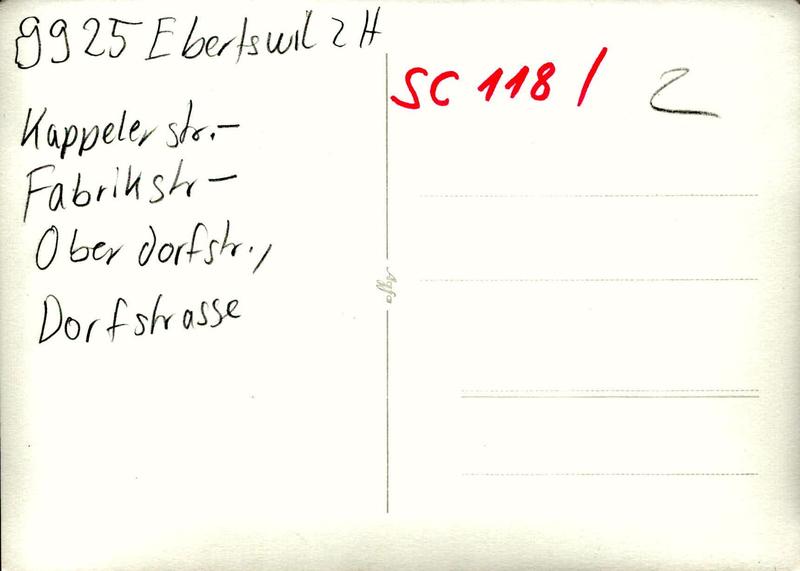 8925 Ebertswil ZH
SC 118/ 2
Kappelerstr.-
Fabrikstr-
Oberdorfstr.,
Dorfstrasse
Agfa